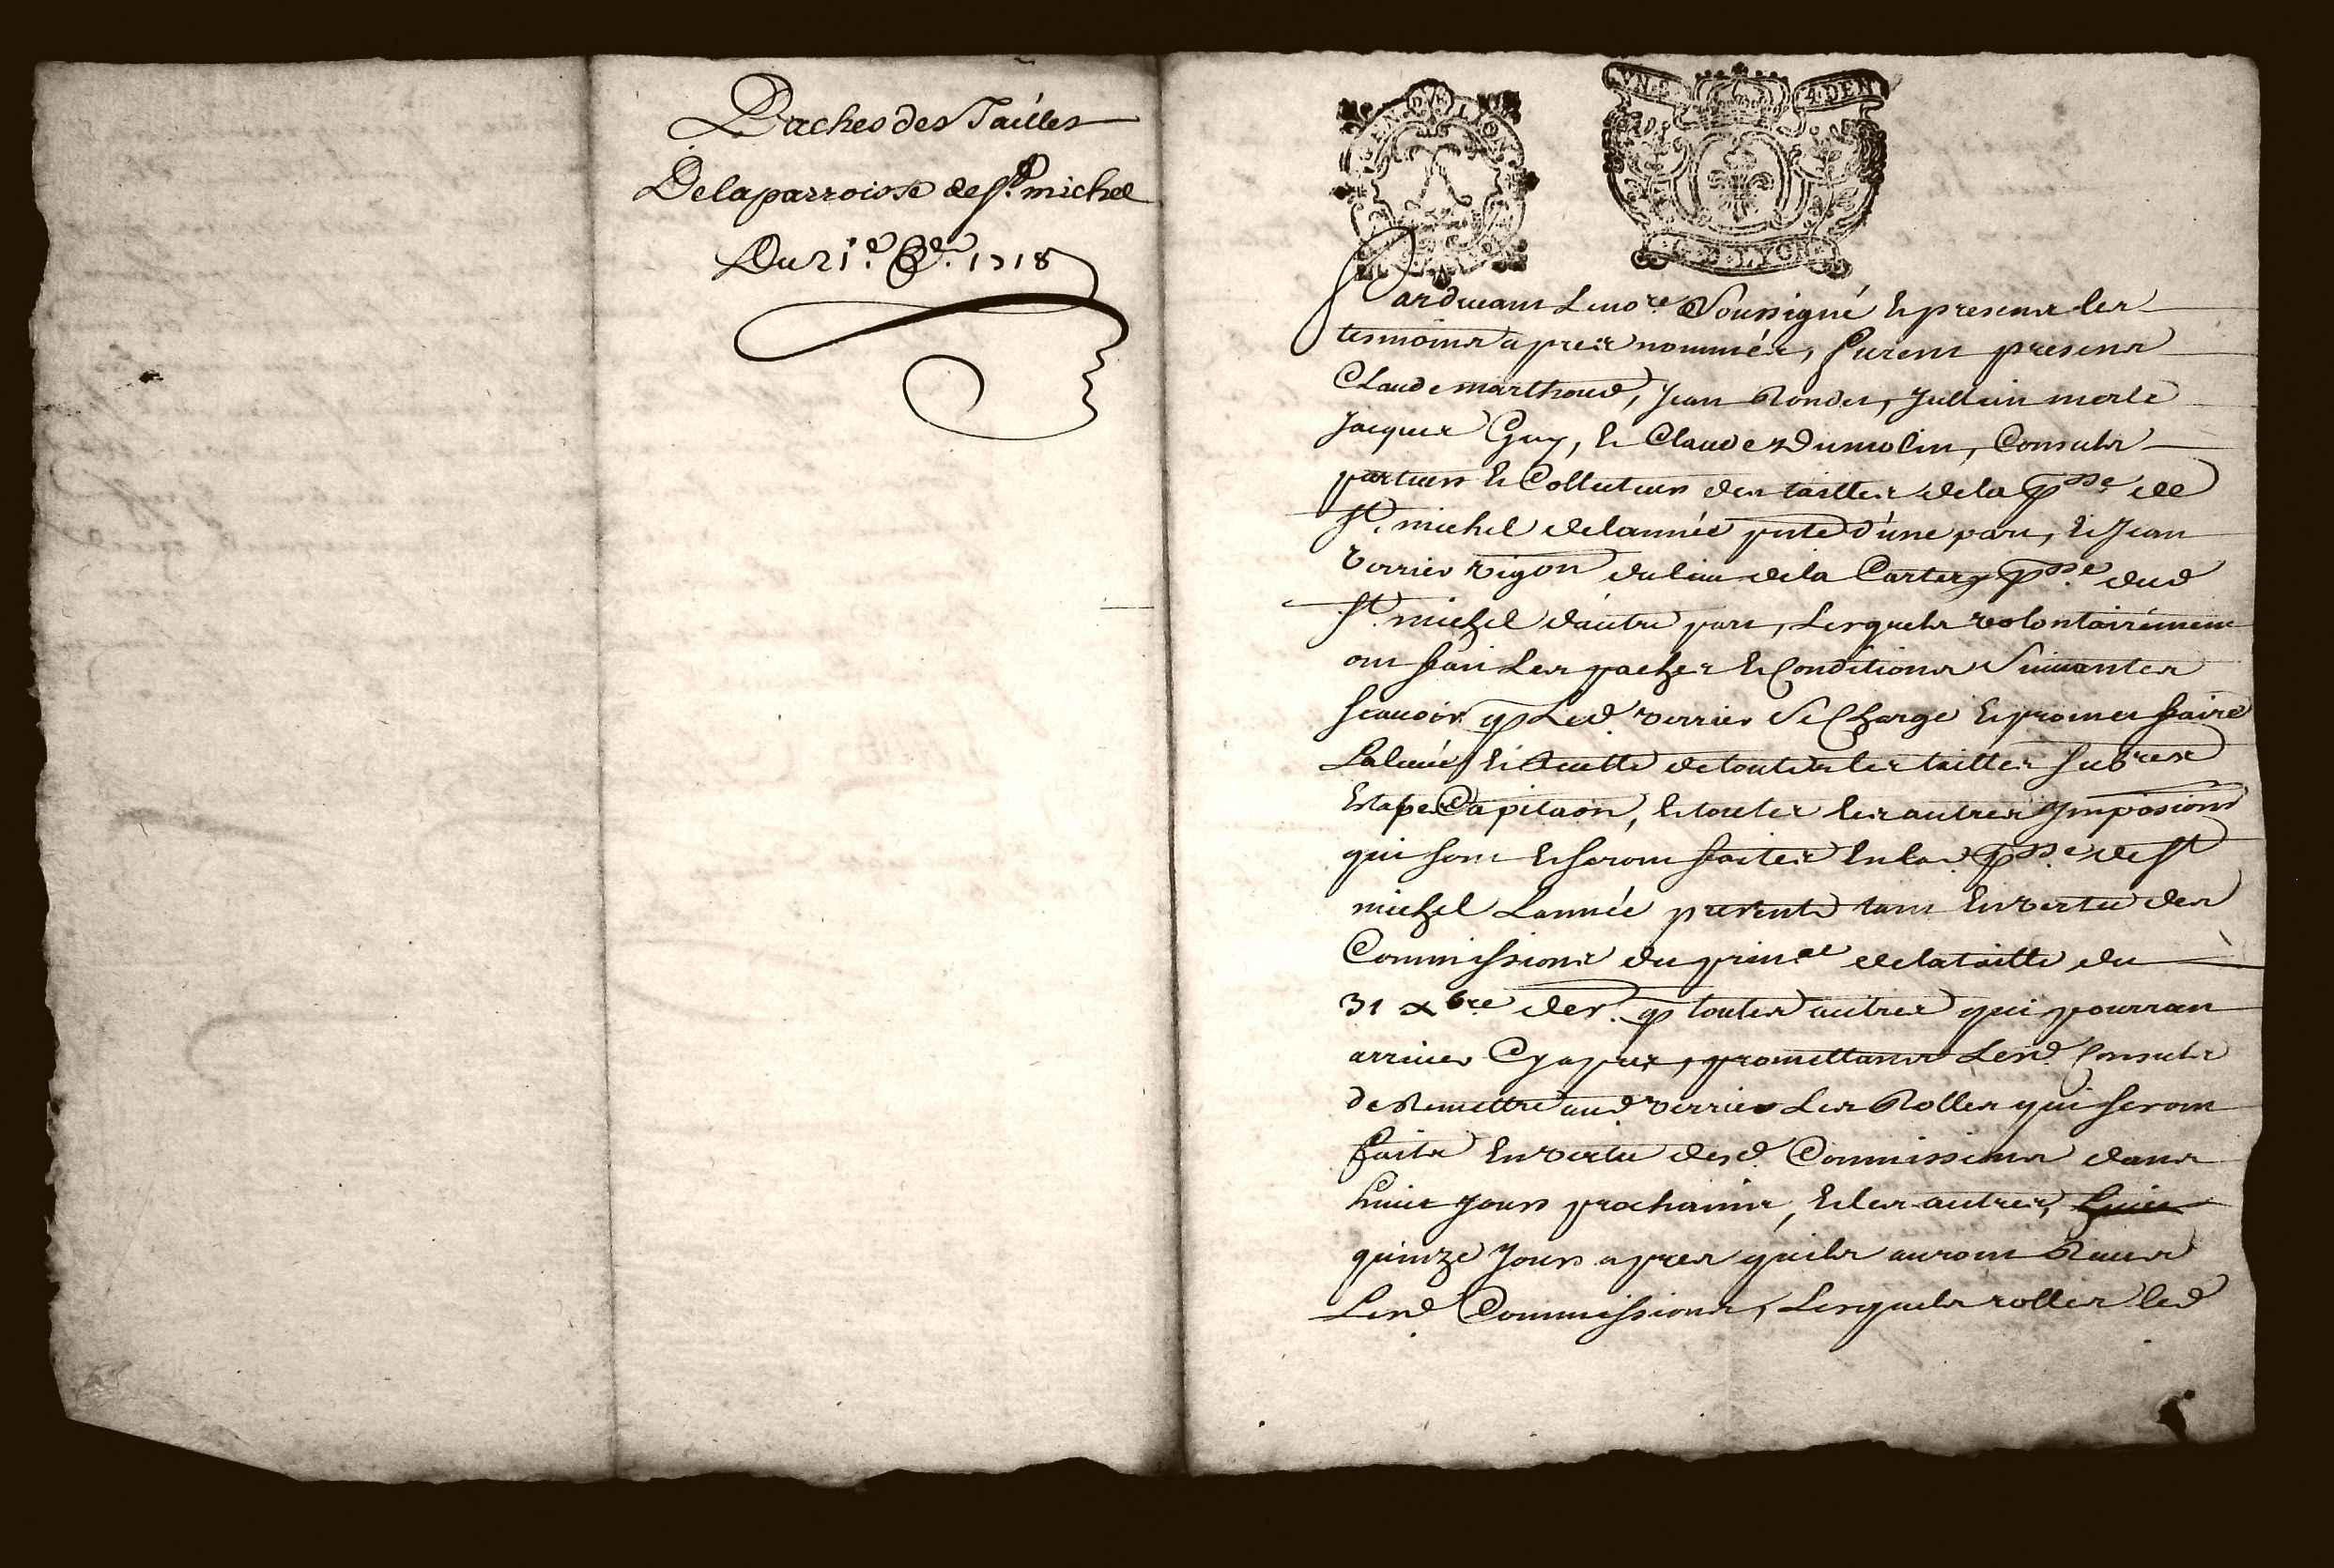 Paches des Tailles
De la parroisse de St. michel
Du 21e. 1718
GEN DVE LYON
VN S 4 DEN
G D LYON
Pardevant Le no.re Soussigné et presens les
tesmoins apres nommés, furent presens
Claude marthoud, Jean Rondet, Jullien merle
Jacques Guy, et Claude Dumolin, Consuls
parteurs et Collecteurs des tailles de la psse de
St. michel de lannée pnte d'une part, et Jean
verrier vigon du lieu de la psse. dud
St. michel dautre part, Lesquels volontairement
ont fait Les paches et Conditions Suivantes
scavoir q Led. verrier Se Charge et promet faire
La levée et Recette de toutes les tailles
Estape Capitaon, et toutes les autres Jmposions
qui sont et seront faites en lad. psse. de St
michel Lannée presente tant En vertu des
Commissions du prin.al de la taille du
31 xbre der. q toutes autres qui pourront
arriver Cy apres, promettants Lesd. Consuls
de Remettre aud. verrier Les Rolles qui seront
faits En vertu desd. Commissions dans
huit Jours prochains, et les autres, huit
quinze Jours apres quils auront Receus
Lesd. Commissions, Lesquels rolles led